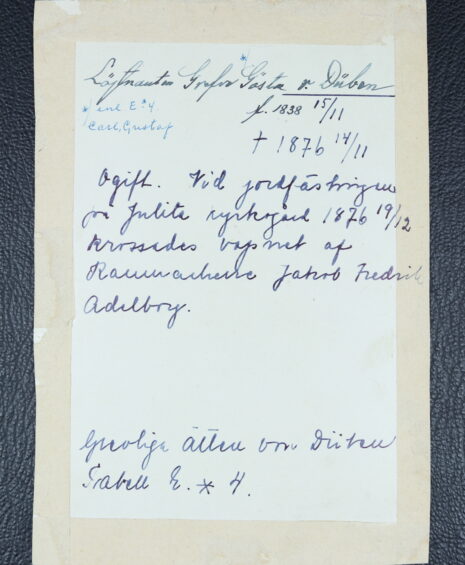 Löjtnanten Grefve Gösta v. Düben
* enl E:4
Carl, Gustaf
f. 1838 15/11
† 1876 14/11
Ogift. Vid jordfästningen
på Julita kyrkogård 1876 19/12
krossades vapnet af
Kammarherre Jakob Fredrik
Adelborg.
Grevliga ätten von Düben
Tabell E. * 4.